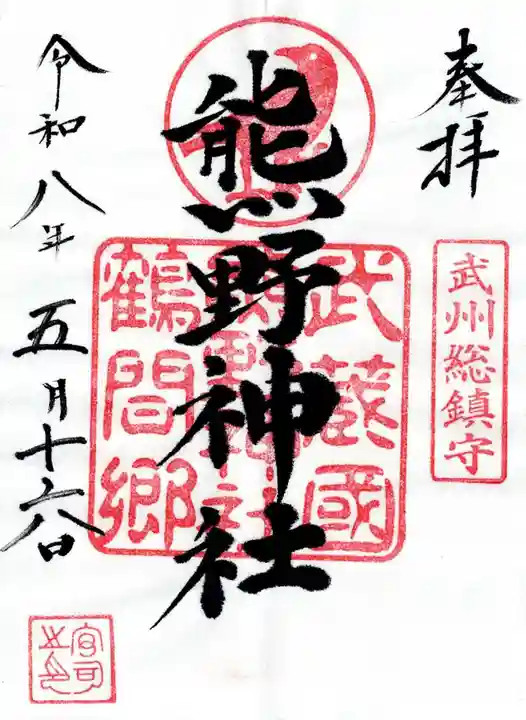 奉拝
武州総鎮守
熊野神社
武蔵國
熊野神社
鶴間郷
令和八年五月十六日
宮司之印